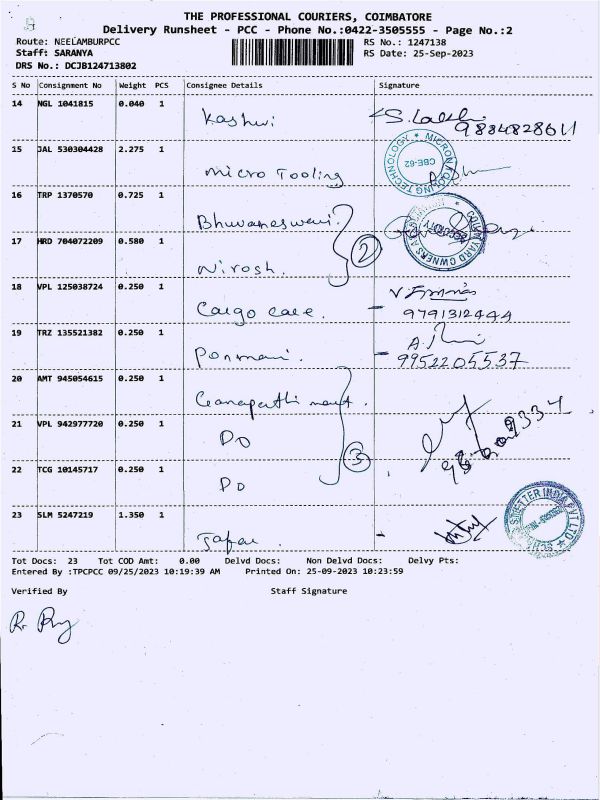 THE PROFESSIONAL COURIERS, COIMBATORE
Delivery Runsheet - PCC - Phone No.:0422-3505555 - Page No.:2
Route: NEELAMBURPCC RS No.: 1247138
Staff: SARANYA RS Date: 25-Sep-2023
DRS No.: DCJB124713802
S No Consignment No Weight PCS Consignee Details Signature
14 NGL 1041815 0.040 1
Kashvi S. Lakshi
9884828611
15 JAL 530304428 2.275 1
micro Tooling
MICRON TOOLING TECHNOLOGY
CBE-62
16 TRP 1370570 0.725 1
Bhuvaneswari.
SECURITY
17 HRD 704072209 0.580 1
2
Nirosh.
18 VPL 125038724 0.250 1
Cargo care.
9791312444
19 TRZ 135521382 0.250 1
Ponmani.
9952205537
20 AMT 945054615 0.250 1
Ganapathi
21 VPL 942977720 0.250 1
Do
3
22 TCG 10145717 0.250 1
Do
23 SLM 5247219 1.350 1
INDIA PVT LTD
Tot Docs: 23 Tot COD Amt: 0.00 Delvd Docs: Non Delvd Docs: Delvy Pts:
Entered By :TPCPCC 09/25/2023 10:19:39 AM Printed On: 25-09-2023 10:23:59
Verified By Staff Signature